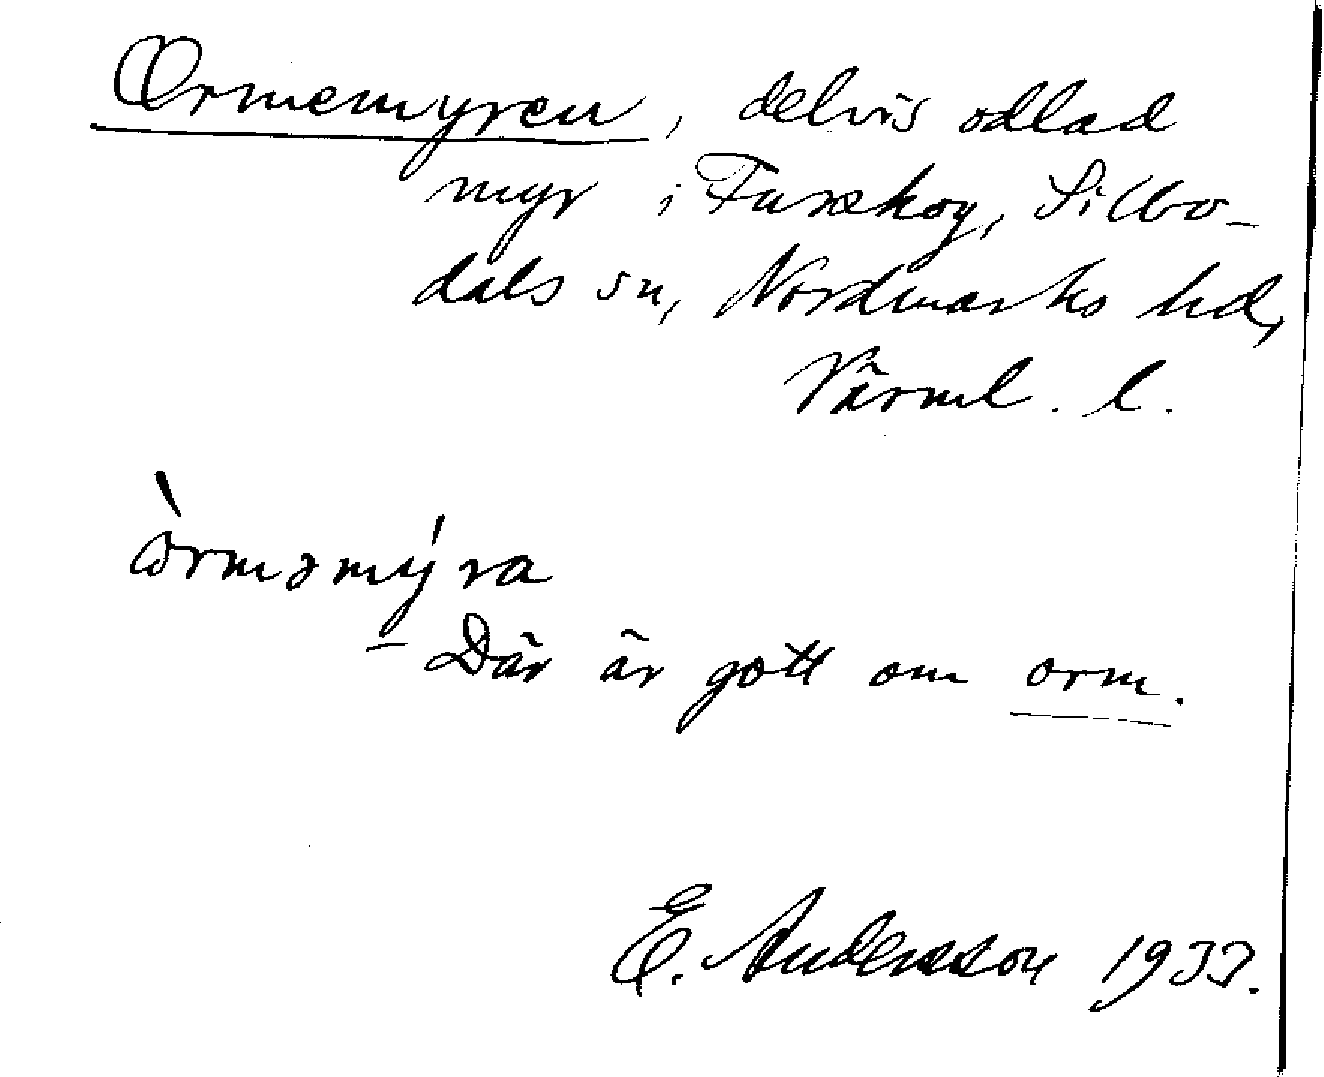 Ormemyren, delvis odlad
myr i Furskog, Silbo-
dals sn, Nordmarks hd,
Värml. l.
òrməmýra
– Där är gott om orm.
E. Andersson 1933.